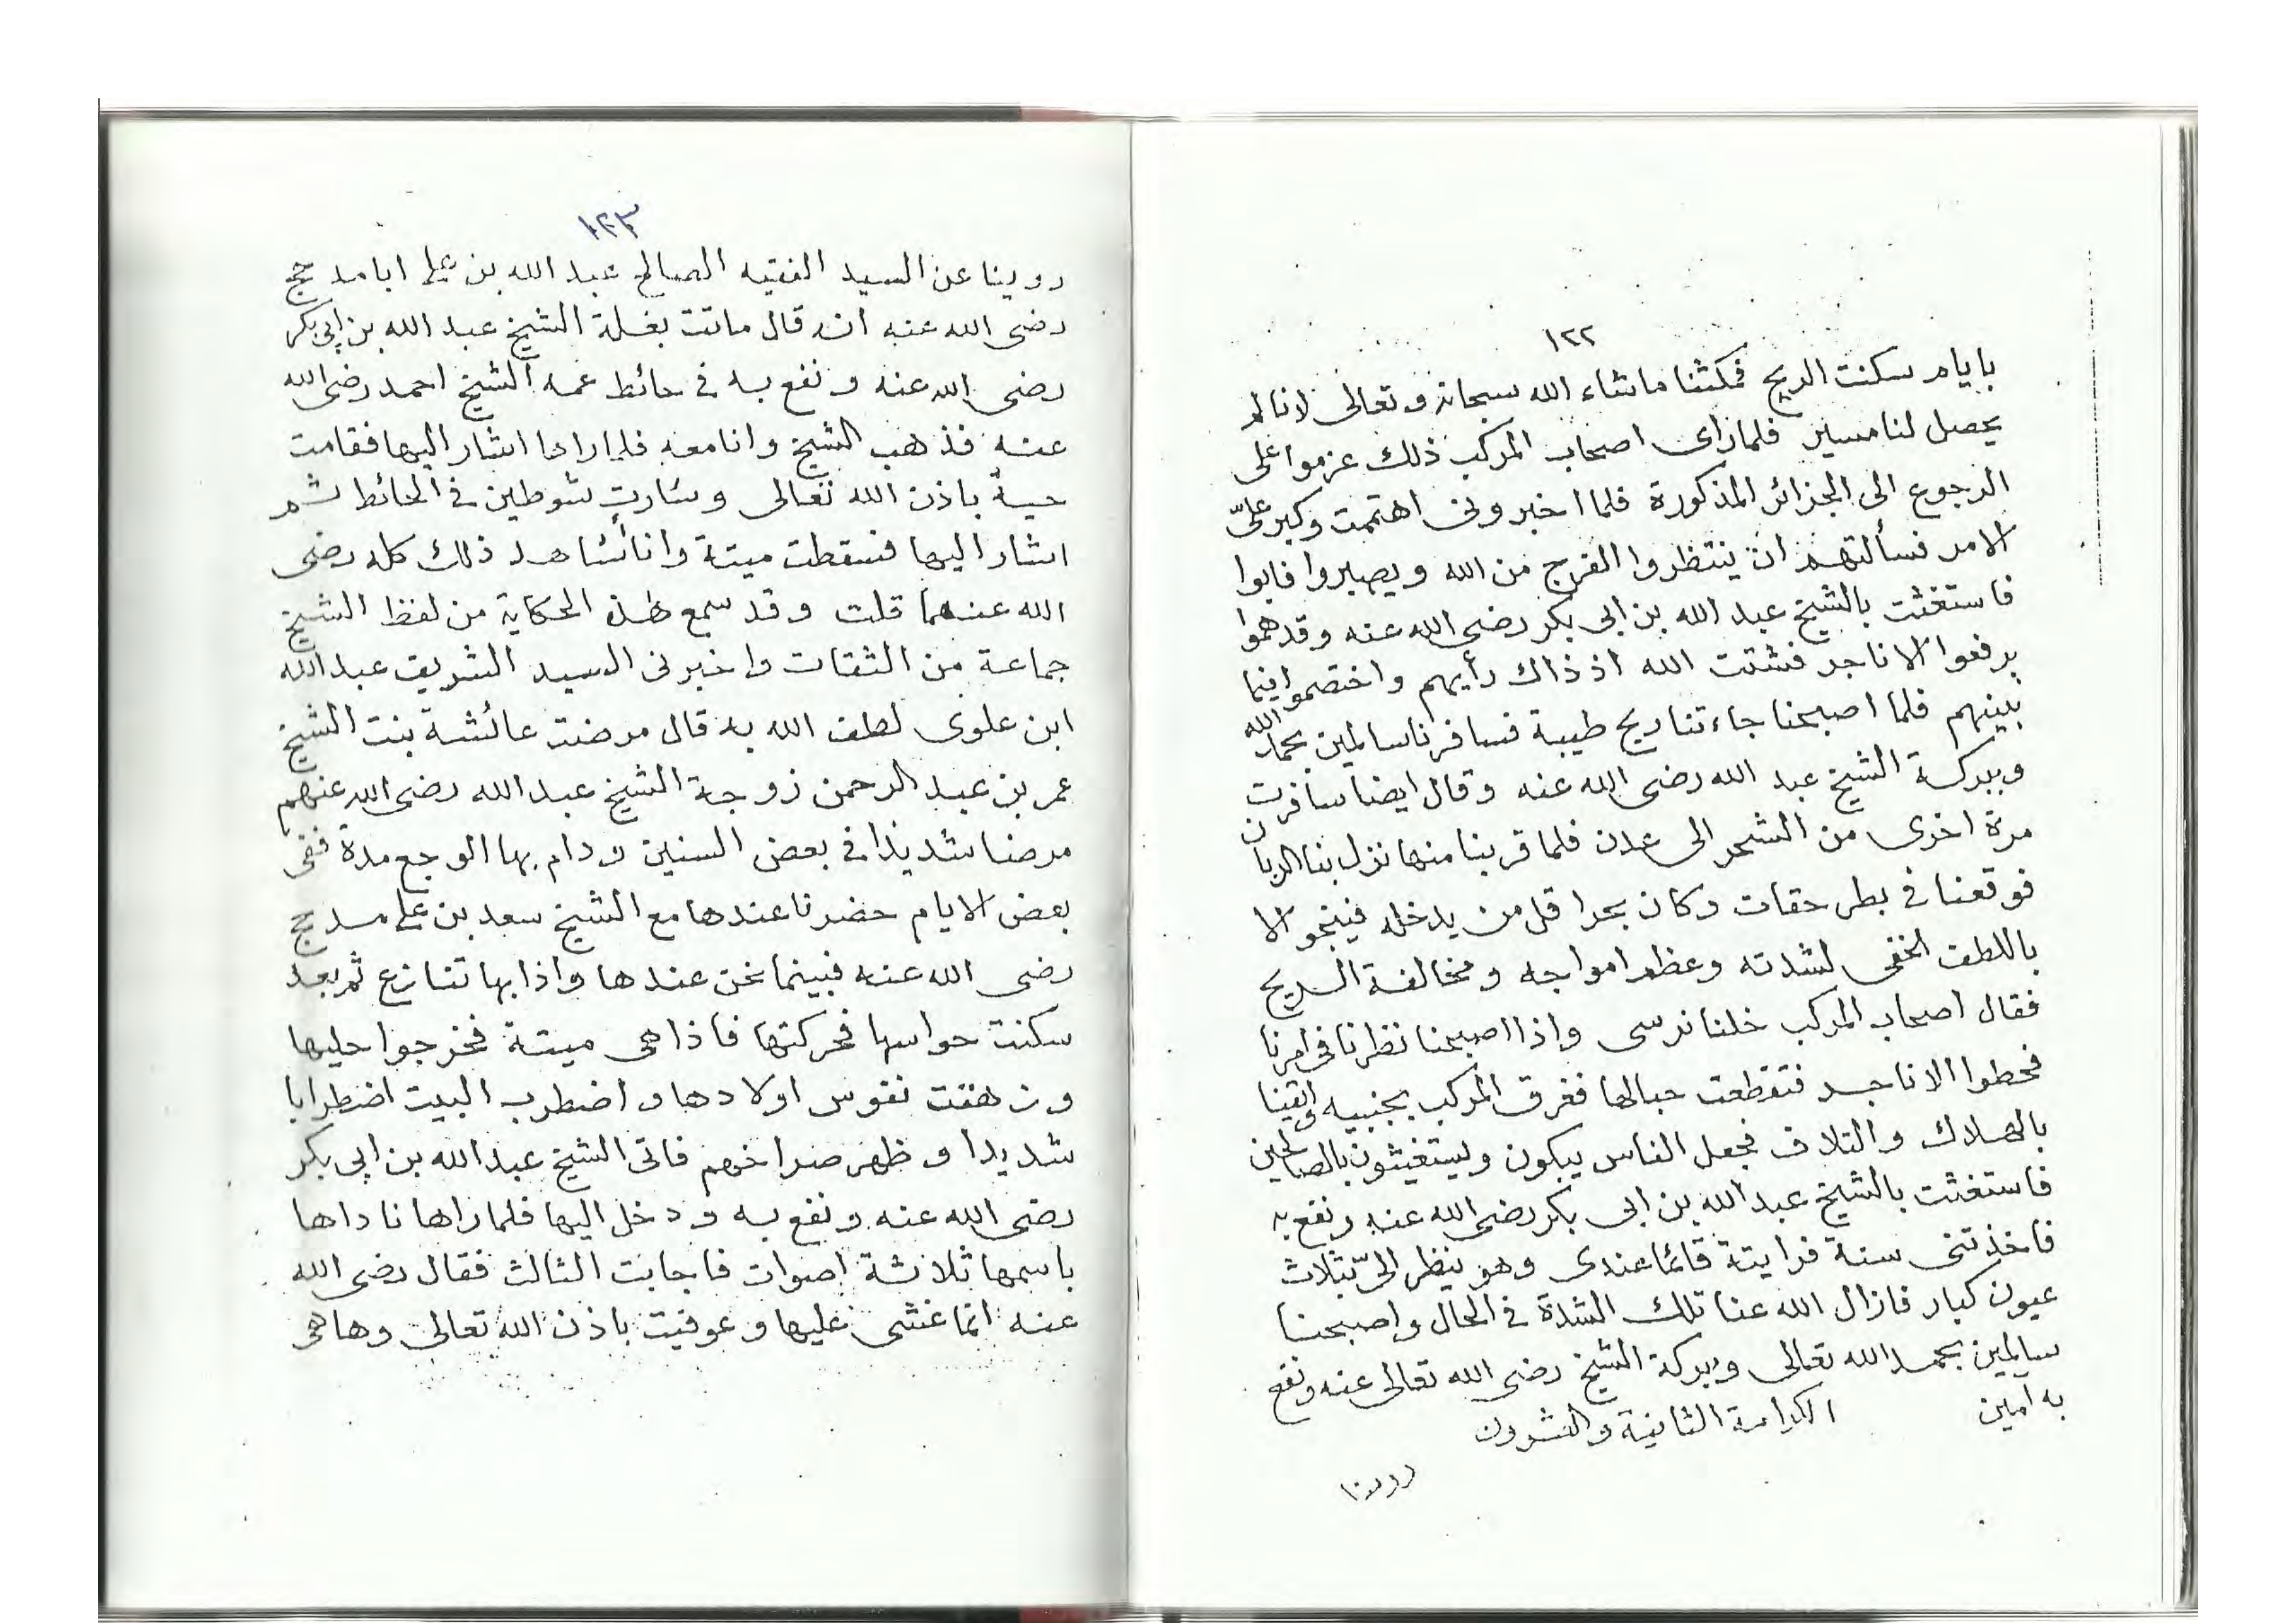 ١٢٢
بايام سكنت الريح فمكثنا ماشاء الله سبحانه وتعالى لانا لم
يحصل لنا مسير فلما راى اصحاب المركب ذلك عزموا على
الرجوع الى الجزائر المذكورة فلما اخبرونى اهتممت وكبر علىّ
الامر فسألتهم ان ينتظروا الفرج من الله ويصبروا فابوا
فاستغثت بالشيخ عبد الله بن ابى بكر رضى الله عنه وقد هموا
يرفعوا الاناجر فشتت الله اذ ذاك رأيهم واختصموا فيما
بينهم فلما اصبحنا جاءتنا ريح طيبة فسافرنا سالمين بحمد الله
وببركة الشيخ عبد الله رضى الله عنه وقال ايضا سافرت
مرة اخرى من الشحر الى عدن فلما قربنا منها نزل بنا الربان
فوقعنا فى بطن حقات وكان بحرا قل من يدخله فينجو الا
باللطف الخفى لشدته وعظم امواجه ومخالفة الريح
فقال اصحاب المركب خلنا نرسى واذا اصبحنا نظرنا فى امرنا
فحطوا الاناجر فتقطعت حبالها فغرق المركب بجنبيه وايقنا
بالهلاك والتلاف فجعل الناس يبكون ويستغيثون بالصالحين
فاستغثت بالشيخ عبد الله بن ابى بكر رضى الله عنه ونفع به
فاخذتنى سنة فرايته قائما عندى وهو ينظر الىّ بثلاث
عيون كبار فازال الله عنا تلك الشدة فى الحال واصبحنا
سالمين بحمد الله تعالى وببركة الشيخ رضى الله تعالى عنه ونفع
به امين الكرامة الثانية والعشرون
روينا
١٢٣
روينا عن السيد الفقيه الصالح عبد الله بن على ابا مدحج
رضى الله عنه انه قال ماتت بغلة الشيخ عبد الله بن ابى بكر
رضى الله عنه ونفع به فى حائط عمه الشيخ احمد رضى الله
عنه فذهب الشيخ وانا معه فلما راها اشار اليها فقامت
حية باذن الله تعالى وسارت شوطين فى الحائط ثم
اشار اليها فسقطت ميتة وانا أشاهد ذلك كله رضى
الله عنهما قلت وقد سمع هذه الحكاية من لفظ الشيخ
جماعة من الثقات واخبرنى السيد الشريف عبد الله
ابن علوى لطف الله به قال مرضت عائشة بنت الشيخ
عمر بن عبد الرحمن زوجة الشيخ عبد الله رضى الله عنهم
مرضا شديدا فى بعض السنين ودام بها الوجع مدة ففى
بعض الايام حضرنا عندها مع الشيخ سعد بن على مدحج
رضى الله عنه فبينما نحن عندها واذا بها تنازع ثم بعد
سكنت حواسها فحركتها فاذا هى ميتة فخرجوا حليها
وزهقت نفوس اولادها واضطرب البيت اضطرابا
شديدا وظهر صراخهم فاتى الشيخ عبد الله بن ابى بكر
رضى الله عنه ونفع به ودخل اليها فلما راها ناداها
باسمها ثلاثة اصوات فاجابت الثالث فقال رضى الله
عنه انما غشى عليها وعوفيت باذن الله تعالى وها هى